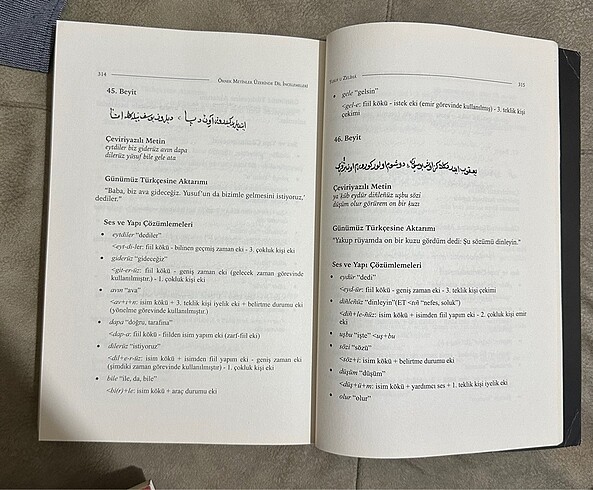 314
ÖRNEK METİNLER ÜZERİNDE DİL İNCELEMELERİ
45. Beyit
Çeviriyazılı Metin
eytdiler biz giderüz avın dapa
dilerüz yûsuf bile gele ata
Günümüz Türkçesine Aktarımı
"Baba, biz ava gideceğiz. Yusuf'un da bizimle gelmesini istiyoruz,'
dediler."
Ses ve Yapı Çözümlemeleri
• eytdiler "dediler"
<eyt-di-ler: fiil kökü - bilinen geçmiş zaman eki - 3. çokluk kişi eki
• giderüz "gideceğiz"
<git-er-üz: fiil kökü - geniş zaman eki (gelecek zaman görevinde
kullanılmıştır.) - 1. çokluk kişi eki
• avın "ava"
<av+ı+n: isim kökü + 3. teklik kişi iyelik eki + belirtme durumu eki
(yönelme görevinde kullanılmıştır).
• dapa "doğru, tarafına"
<dap-a: fiil kökü - fiilden isim yapım eki (zarf-fiil eki)
• dilerüz "istiyoruz"
<dil+e-r-üz: isim kökü + isimden fiil yapım eki - geniş zaman eki
(şimdiki zaman görevinde kullanılmıştır) - 1. çokluk kişi eki
• bile "ile, da, bile"
<bi(r)+le: isim kökü + araç durumu eki
YUSUF U ZELİHA
315
• gele "gelsin"
<gel-e: fiil kökü - istek eki (emir görevinde kullanılmış) - 3. teklik kişi
çekimi
46. Beyit
Çeviriyazılı Metin
ya'kûb eydür diñleñüz uşbu sözi
düşüm olur görürem on bir kuzı
Günümüz Türkçesine Aktarımı
"Yakup rüyamda on bir kuzu gördüm dedi: Şu sözümü dinleyin."
Ses ve Yapı Çözümlemeleri
• eydür "dedi"
<eyd-ür: fiil kökü - geniş zaman eki - 3. teklik kişi çekimi
• diñleñüz "dinleyin"(ET <tıñ "nefes, soluk")
<diñ+le-ñüz: isim kökü + isimden fiil yapım eki - 2. çokluk kişi emir
eki
• uşbu "işte" <uş+bu
• sözi "sözü"
<söz+i: isim kökü + belirtme durumu eki
• düşüm "düşüm"
<düş+ü+m: isim kökü + yardımcı ses + 1. teklik kişi iyelik eki
• olur "olur"